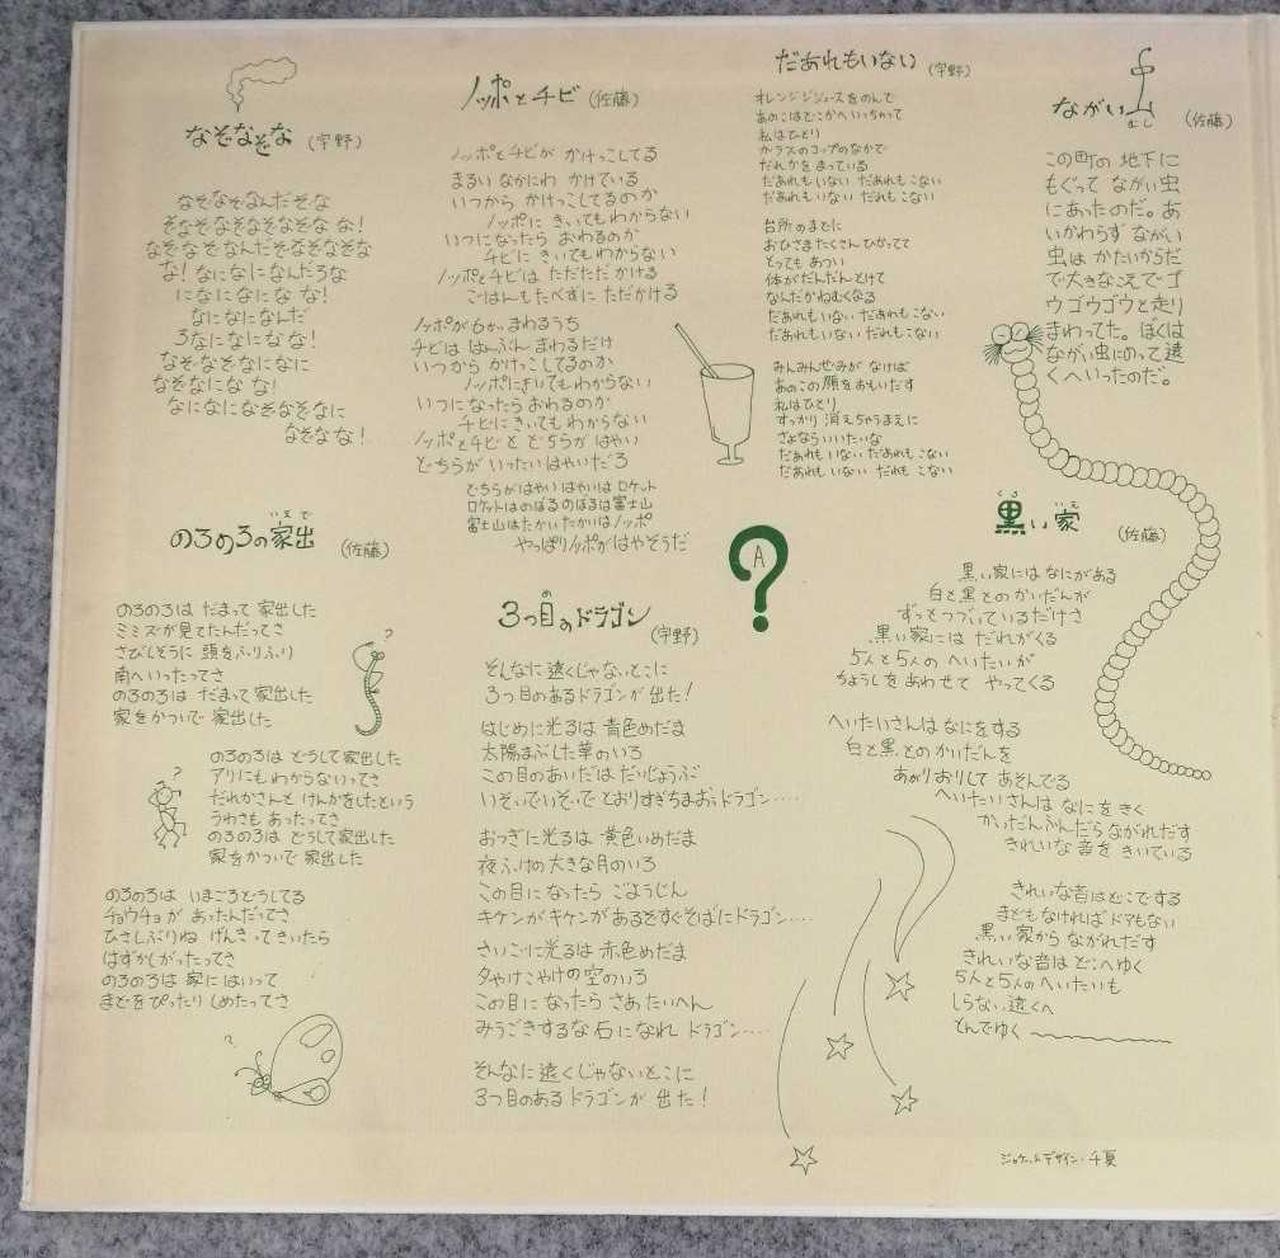 なぞなぞな (宇野)
なぞなぞなんだぞな
ぞなぞなぞなぞなぞな な!
なぞなぞなんだぞなぞなぞな
な! なになになんだろな
になになにな な!
なになになんだ
ろなになにな な!
なぞなぞなになに
なぞなにな な!
なになになぞなぞなに
なぞな な!
のろのろの家出 (佐藤)
いえで
のろのろは だまって 家出した
ミミズが見てたんだってさ
さびしそうに 頭をふりふり
南へいったってさ
のろのろは だまって 家出した
家をかついで 家出した
のろのろは どうして家出した
アリにも わからないってさ
だれかさんと けんかをしたという
うわさも あったってさ
のろのろは どうして家出した
家をかついで 家出した
のろのろは いまごろどうしてる
チョウチョが あったんだってさ
ひさしぶりね げんきってきいたら
はずかしがったってさ
のろのろは 家に はいって
まどをぴったり しめたってさ
ノッポとチビ (佐藤)
ノッポとチビが かけっこしてる
まるい なかにわ かけている
いつから かけっこしてるのか
ノッポに きいてもわからない
いつになったら おわるのか
チビに きいてもわからない
ノッポとチビは ただただ かける
ごはんもたべずに ただかける
ノッポが まわるうち
チビは はんぶん まわるだけ
いつから かけっこしてるのか
ノッポにきいてもわからない
いつになったら おわるのか
チビにきいてもわからない
ノッポとチビと どちらが はやい
どちらが いったい はやいだろ
どちらがはやい はやいは ロケット
ロケットはのぼる のぼるは富士山
富士山はたかい たかいはノッポ
やっぱりノッポがはやそうだ
3つ目のドラゴン (宇野)
め
そんなに 遠くじゃないとこに
3つ目のあるドラゴンが 出た!
はじめに光るは 青色めだま
太陽まぶした草のいろ
この目のあいだは だいじょうぶ
いそいでいそいで とおりすぎちまおう ドラゴン‥‥
おつぎに光るは 黄色いめだま
夜ふけの大きな月のいろ
この目になったら ごようじん
キケンがキケンが あるぞすぐそばにドラゴン‥‥
さいごに光るは 赤色めだま
夕やけこやけの空のいろ
この目になったら さあ たいへん
みうごきするな 石になれ ドラゴン‥‥
そんなに 遠くじゃないとこに
3つ目のあるドラゴンが 出た!
だあれもいない (宇野)
オレンジジュースをのんで
あのこはどこかへいっちゃって
私はひとり
ガラスのコップのなかで
だれかをまっている
だあれもいない だあれもこない
だあれもいない だれもこない
台所のまどに
おひさまたくさんひかってて
とっても あつい
体がだんだんとけて
なんだかねむくなる
だあれもいない だあれもこない
だあれもいない だれもこない
みんみんぜみが なけば
あのこの顔をおもいだす
私はひとり
すっかり 消えちゃうまえに
さよならいいたいな
だあれも いない だあれも こない
だあれも いない だれも こない
?
A
ながい虫 (佐藤)
むし
この町の 地下に
もぐって ながい虫
にあったのだ。あ
いかわらず ながい
虫は かたいからだ
で大きなこえでゴ
ウゴウゴウと走り
まわってた。ぼくは
ながい虫にのって遠
くへいったのだ。
黒い家 (佐藤)
くろ いえ
黒い家には なにがある
白と黒とのかいだんが
ずっとつづいているだけさ
黒い家には だれがくる
5人と5人の へいたいが
ちょうしをあわせて やってくる
へいたいさんは なにをする
白と黒とのかいだんを
あがりおりして あそんでる
へいたいさんは なにをきく
かいだんふんだら ながれだす
きれいな音を きいている
きれいな音は どこでする
まどもなければ ドアもない
黒い家から ながれだす
きれいな音は どこへゆく
5人と5人のへいたいも
しらない遠くへ
とんでゆく
ジャケットデザイン・千夏